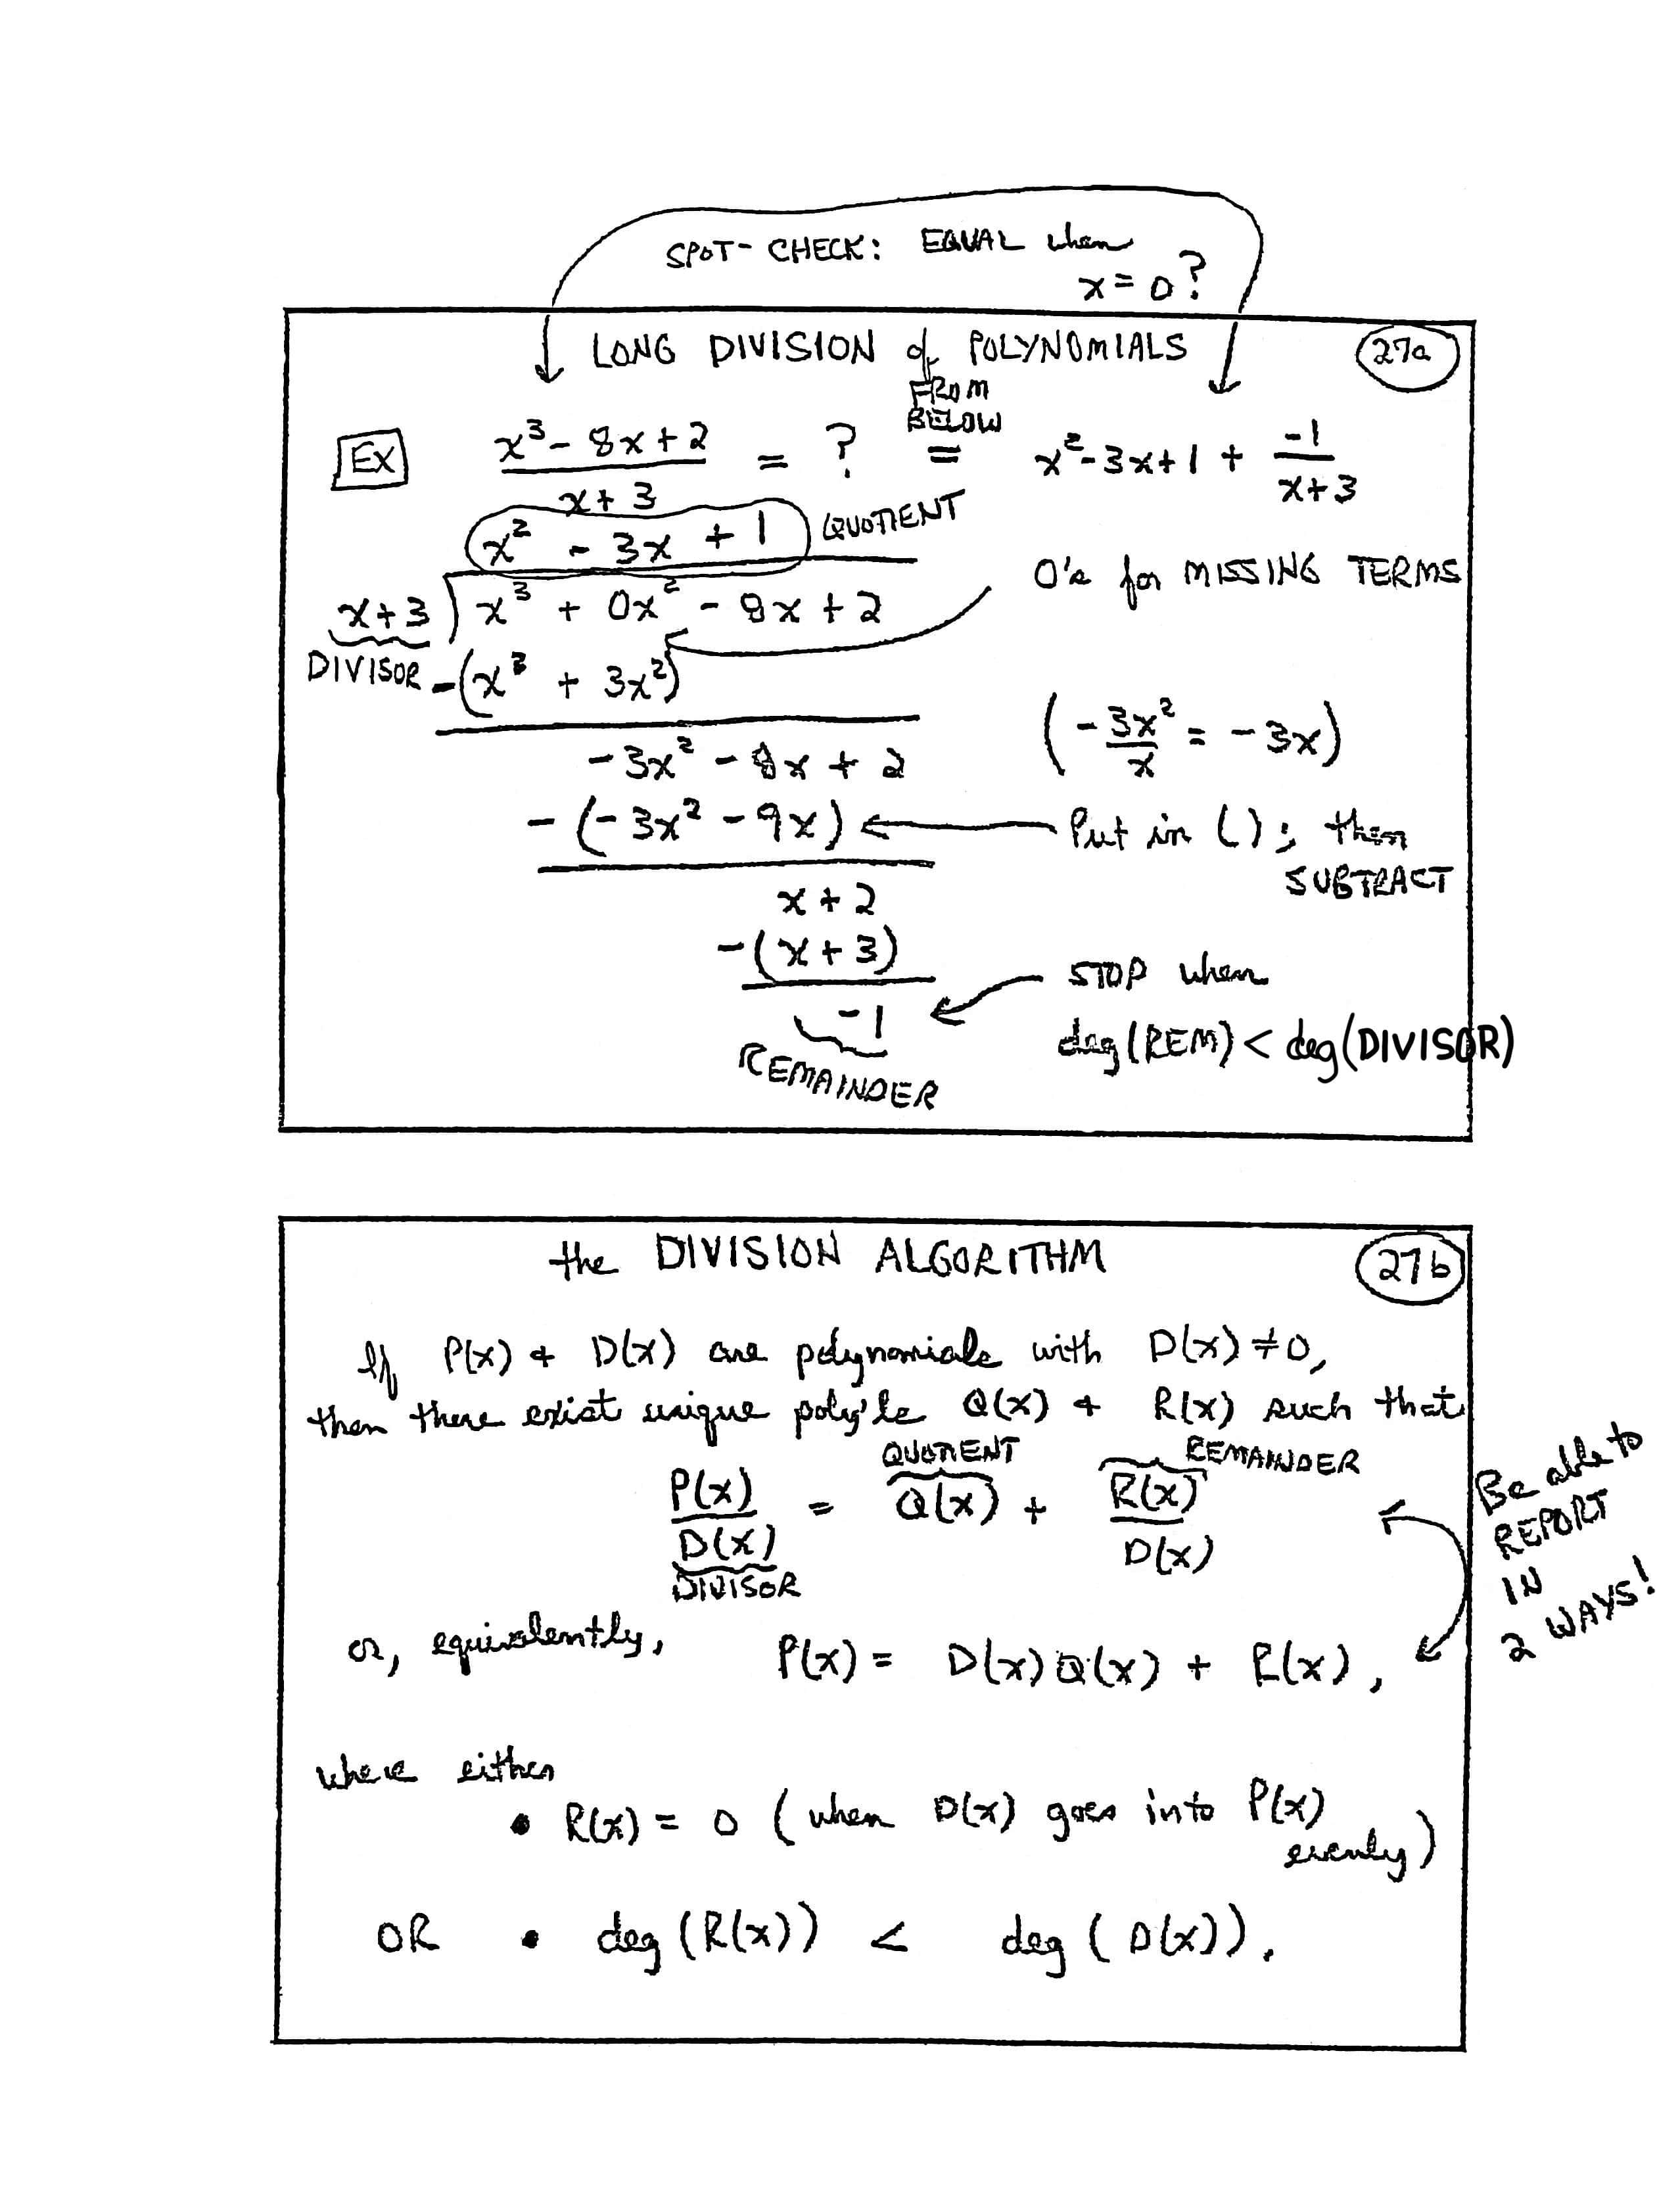 SPOT-CHECK: EQUAL when
x = 0?
LONG DIVISION of POLYNOMIALS
27a
FROM
BELOW
Ex
x³ - 8x + 2 / x + 3 = ? = x² - 3x + 1 + -1 / x + 3
x² - 3x + 1 QUOTIENT
0's for MISSING TERMS
x + 3 ) x³ + 0x² - 8x + 2
DIVISOR
-(x³ + 3x²)
-3x² - 8x + 2
(-3x² / x = -3x)
-(-3x² - 9x)
Put in ( ); then
SUBTRACT
x + 2
-(x + 3)
-1
REMAINDER
STOP when
deg(REM) < deg(DIVISOR)
the DIVISION ALGORITHM
27b
If P(x) & D(x) are polynomials with D(x) ≠ 0,
then there exist unique poly'ls Q(x) & R(x) such that
QUOTIENT REMAINDER
P(x) / D(x) = Q(x) + R(x) / D(x)
DIVISOR
or, equivalently, P(x) = D(x)Q(x) + R(x),
Be able to
REPORT
IN
2 WAYS!
where either
• R(x) = 0 (when D(x) goes into P(x)
evenly)
OR • deg(R(x)) < deg(D(x)).